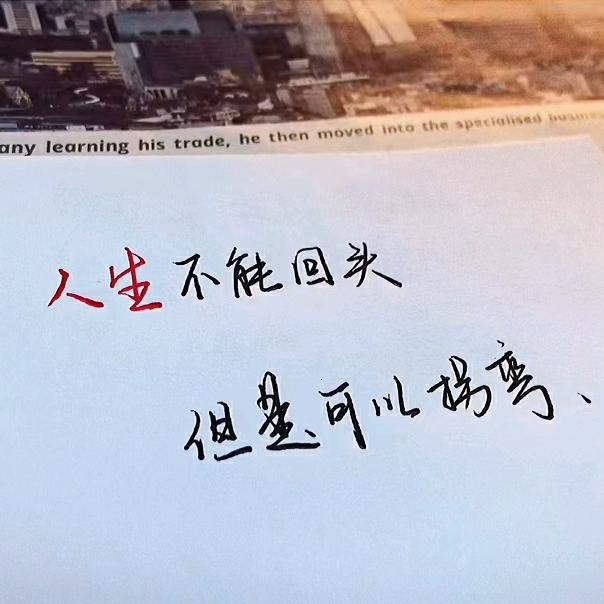 any learning his trade, he then moved into the specialised
人生不能回头
但是可以拐弯、